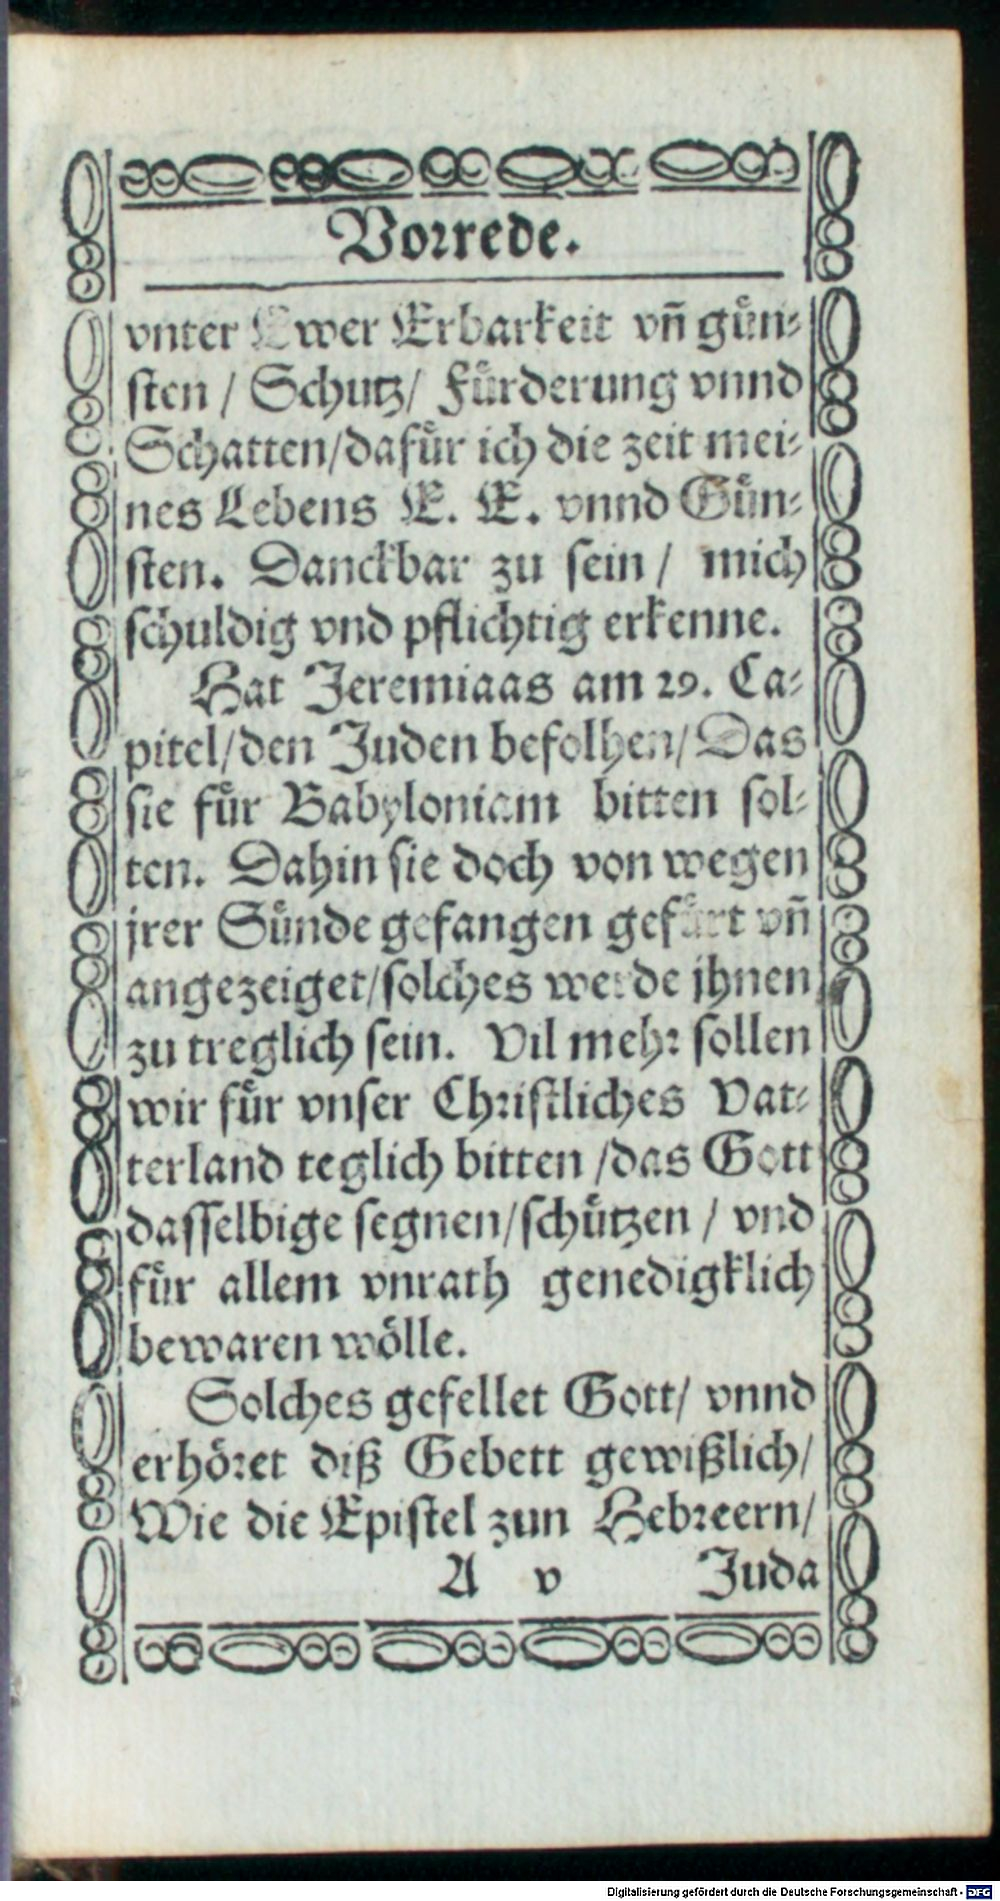 Vorrede.
vnter Ewer Erbarkeit vñ gün-
sten / Schutz/ Fürderung vnnd
Schatten/dafür ich die zeit mei-
nes Lebens E. E. vnnd Gün-
sten. Danckbar zu sein / mich
schuldig vnd pflichtig erkenne.
Hat Jeremiaas am 29. Ca-
pitel/den Juden befolhen/Das
sie für Babyloniam bitten sol-
ten. Dahin sie doch von wegen
jrer Sünde gefangen gefürt vñ
angezeiget/solches werde jhnen
zu treglich sein. Vil mehr sollen
wir für vnser Christliches Vat-
terland teglich bitten /das Gott
dasselbige segnen/schützen / vnd
für allem vnrath genedigklich
bewaren wölle.
Solches gefellet Gott/ vnnd
erhöret diß Gebett gewißlich/
Wie die Epistel zun Hebreern/
A v Juda
Digitalisierung gefördert durch die Deutsche Forschungsgemeinschaft - DFG